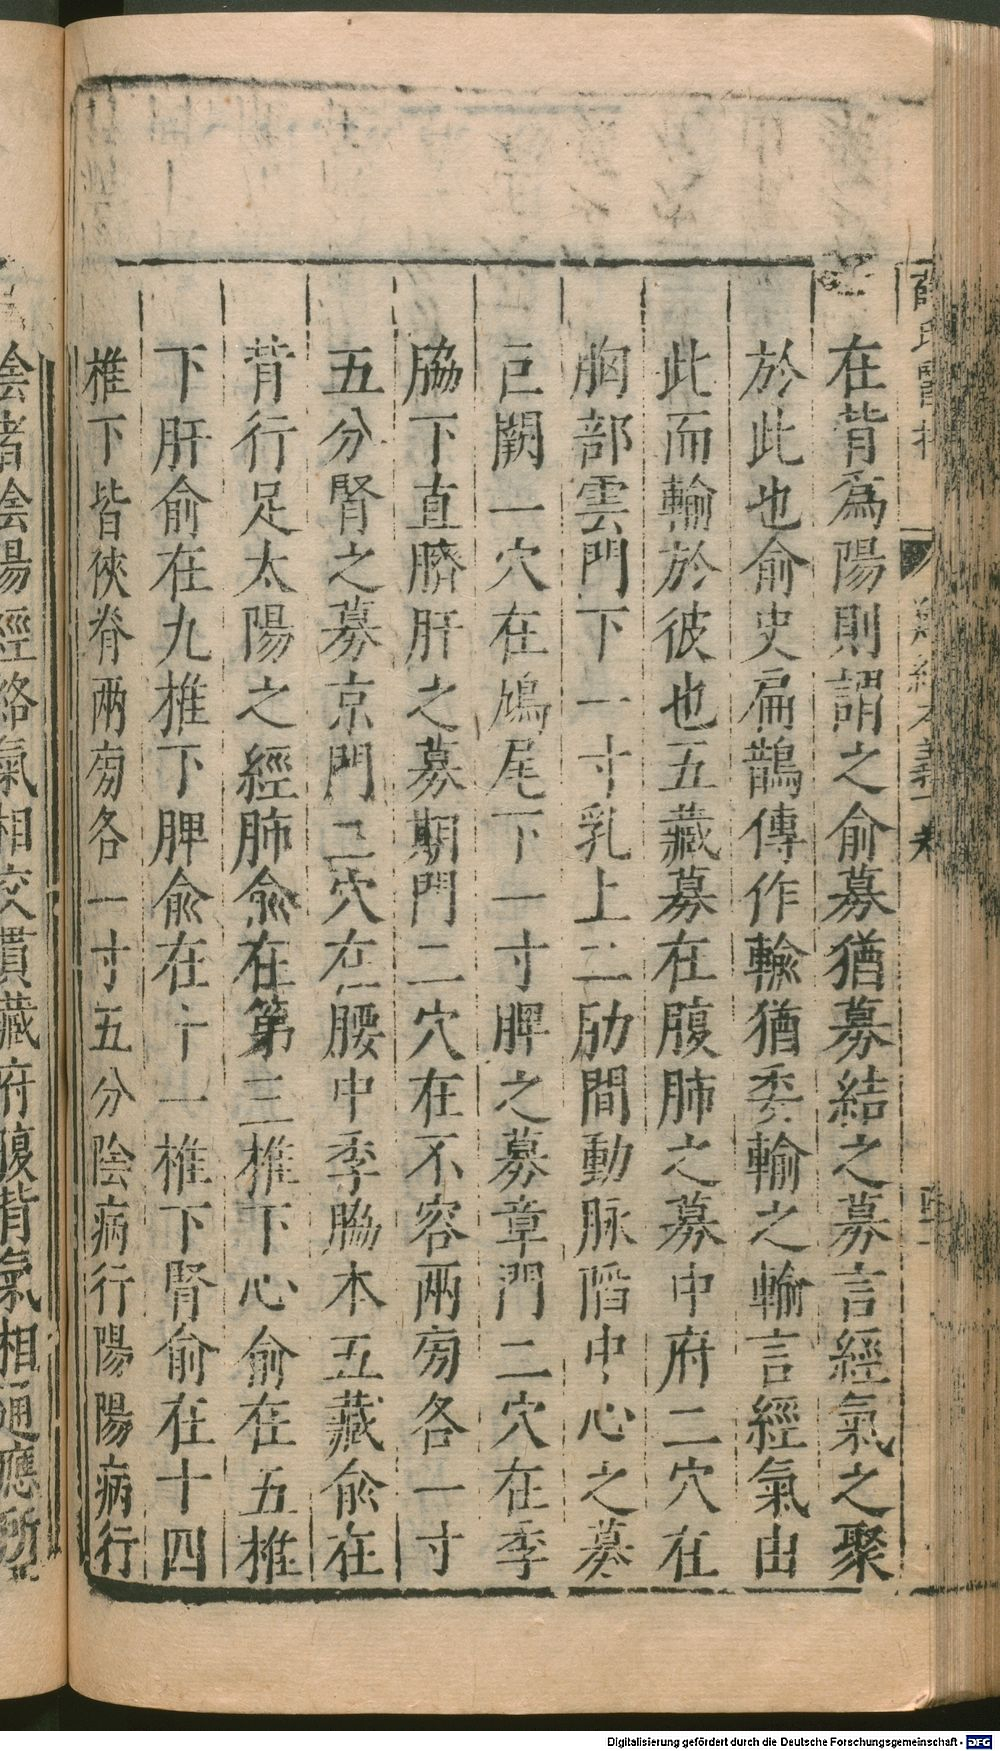 在背爲陽則謂之俞募猶募結之募言經氣之聚
於此也俞史扁鵲傳作輸猶委輸之輸言經氣由
此而輸於彼也五藏募在腹肺之募中府二穴在
胸部雲門下一寸乳上二肋間動脉陷中心之募
巨闕一穴在鳩尾下一寸脾之募章門二穴在季
脇下直臍肝之募期門二穴在不容兩旁各一寸
五分腎之募京門二穴在腰中季脇本五藏俞在
背行足太陽之經肺俞在第三椎下心俞在五椎
下肝俞在九椎下脾俞在十一椎下腎俞在十四
椎下皆俠脊兩旁各一寸五分陰病行陽陽病行
陰者陰陽經絡氣相交貫藏府腹背氣相通應所
Digitalisierung gefördert durch die Deutsche Forschungsgemeinschaft - DFG